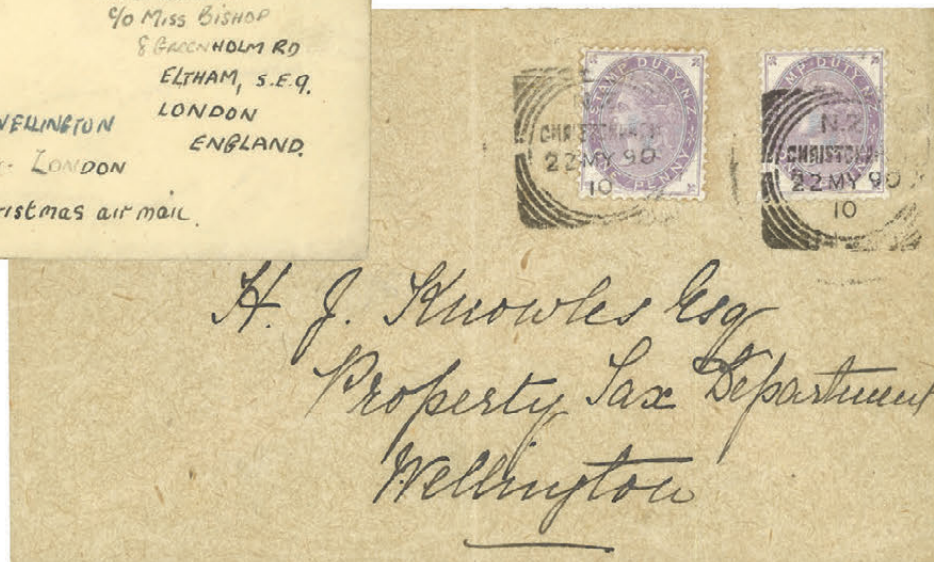 c/o Miss Bishop
8 GREENHOLM RD
ELTHAM, S.E.9.
LONDON
WELLINGTON
ENGLAND.
LONDON
ristmas air mail.
STAMP DUTY N.Z
PENNY
N.Z
CHRISTCHURCH
22 MY 90
10
MP DUTY N.Z
N.Z
CHRISTCH
22 MY 90
10
H. J. Knowles Esq
Property Tax Department
Wellington